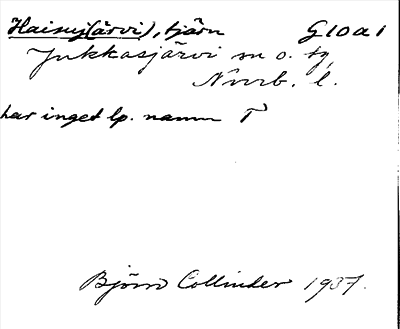 Haisuj(ärvi), tjärn G10a1
Jukkasjärvi sn o. tg
Norrb. l.
har inget lp. namn T
Björn Collinder 1937.